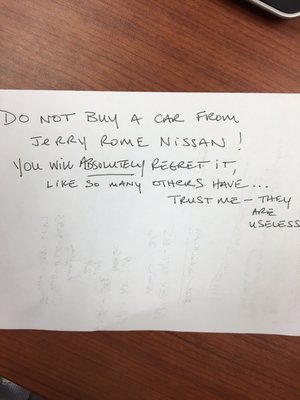 DO NOT BUY A CAR FROM
JERRY ROME NISSAN!
YOU WILL ABSOLUTELY REGRET IT,
LIKE SO MANY OTHERS HAVE...
TRUST ME - THEY
ARE
USELESS